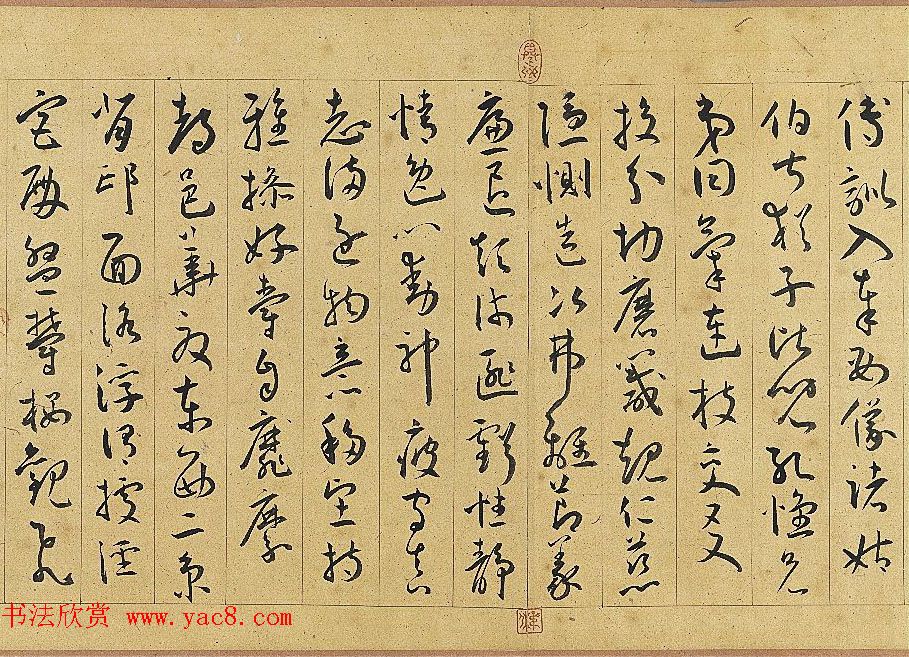 傅訓入奉母儀諸姑
伯叔猶子比兒孔懷兄
弟同氣連枝交友
投分切磨箴規仁慈
隱惻造次弗離節義
廉退顛沛匪虧性靜
情逸心動神疲守真
志滿逐物意移堅持
雅操好爵自縻
都邑華夏東西二京
背邙面洛浮渭據涇
宮殿盤鬱樓觀飛
书法欣赏 www.yac8.com